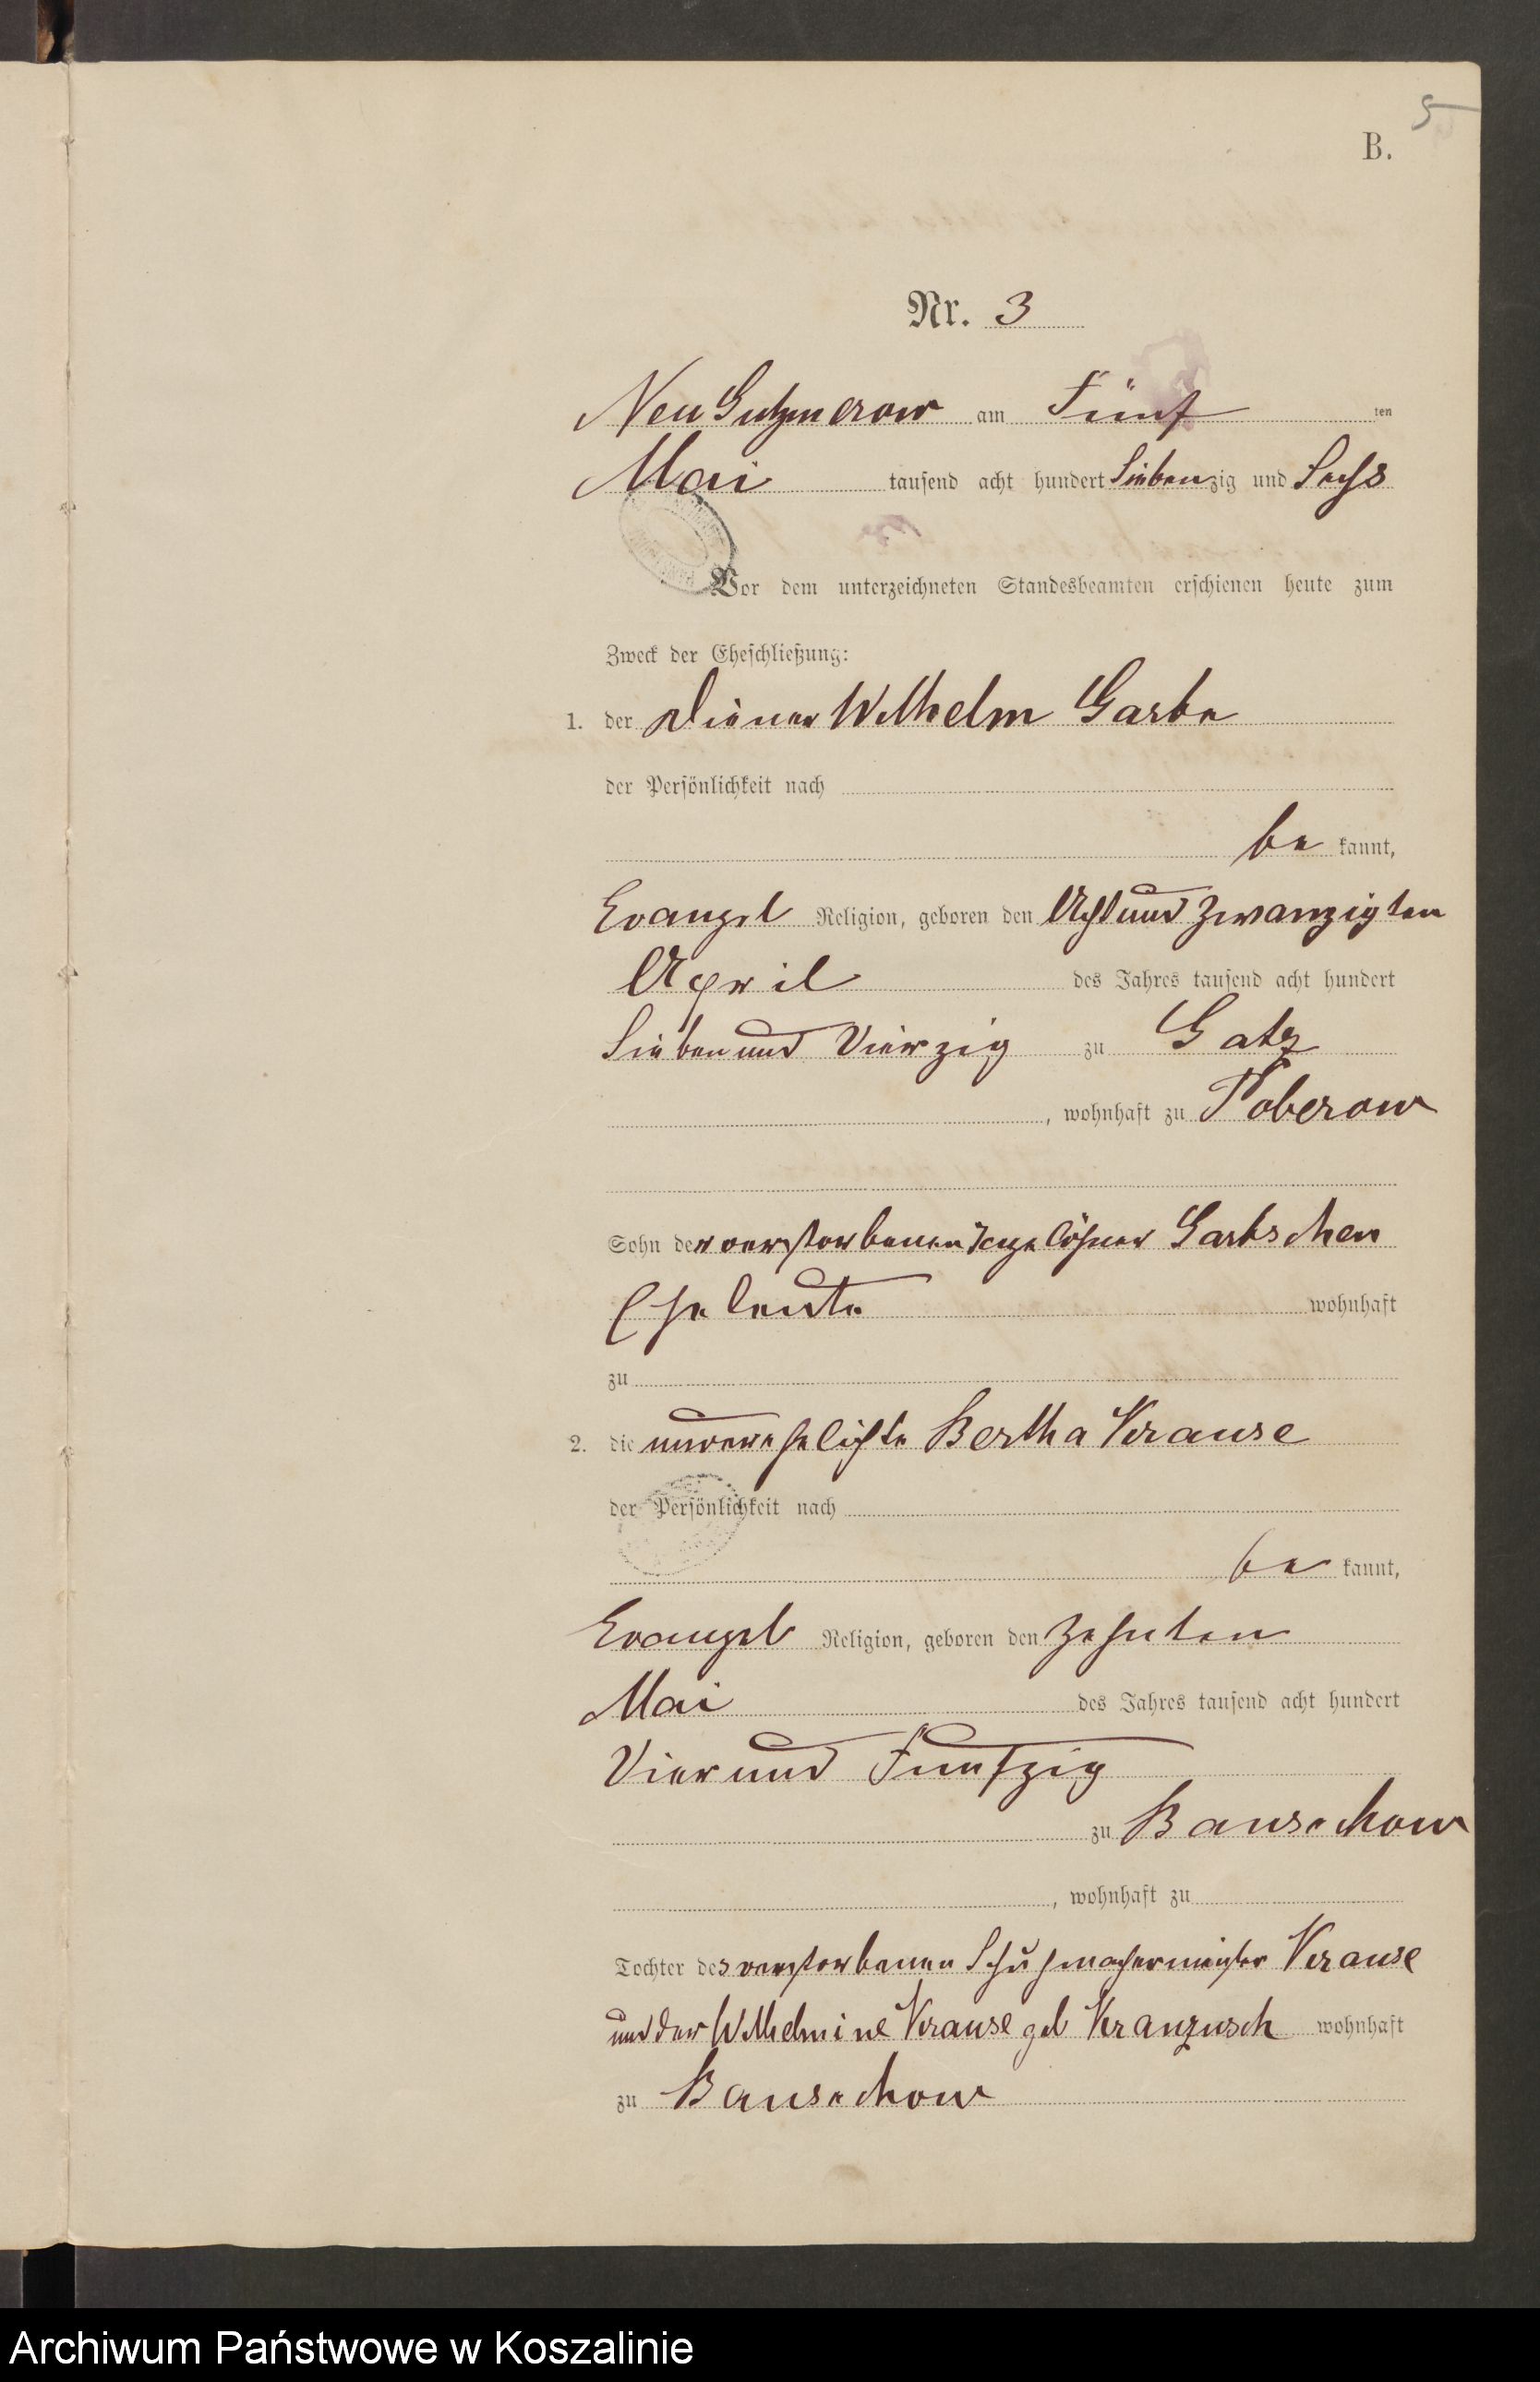 5
B.
Nr. 3
Neu Gutzmerow am Fünf ten
Mai tausend acht hundert Siebenzig und Sechs
Vor dem unterzeichneten Standesbeamten erschienen heute zum
Zweck der Eheschließung:
1. der Diener Wilhelm Garbe
der Persönlichkeit nach
be kannt,
Evangel Religion, geboren den Acht und Zwanzigten
April des Jahres tausend acht hundert
Sieben und Vierzig zu Gatz
, wohnhaft zu Poberow
Sohn der verstorbenen Tagelöhner Garbschen
Eheleute wohnhaft
zu
2. die unverehelichte Bertha Krause
der Persönlichkeit nach
be kannt,
Evangel Religion, geboren den Zehnten
Mai des Jahres tausend acht hundert
Vier und Funfzig
zu Bansekow
, wohnhaft zu
Tochter des verstorbenen Schuhmachermeister Krause
und der Wilhelmine Krause geb Kranzusch wohnhaft
zu Bansekow
Archiwum Państwowe w Koszalinie